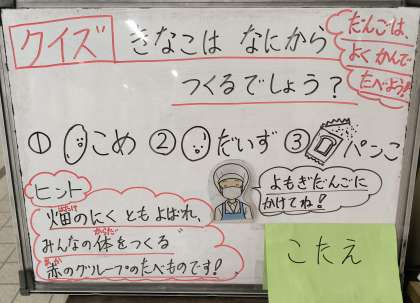 クイズ
きなこは なにから
つくるでしょう?
だんごは、
よくかんで
たべよう!
① こめ ② だいず ③ パンこ
ヒント
畑のにくともよばれ、
はたけ
みんなの体をつくる
からだ
赤のグループのたべものです!
あか
よもぎだんごに
かけてね!
こたえ